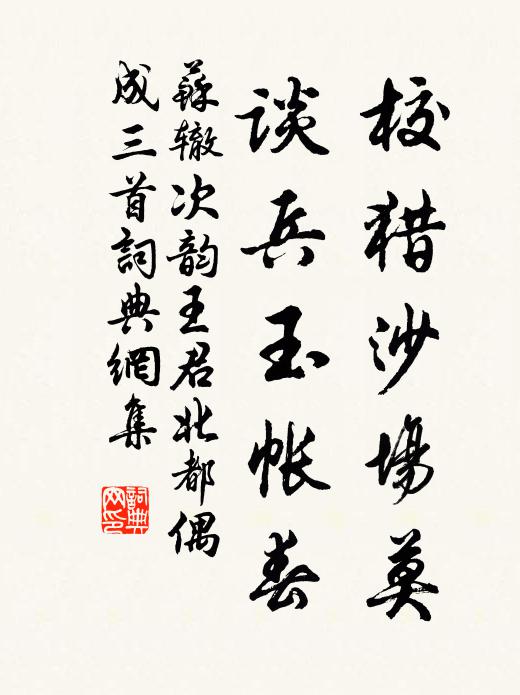 校猎沙場莫
談兵玉帐春
蘇辙次韵王君北都偶
成三首詞典網集
詞典
网印